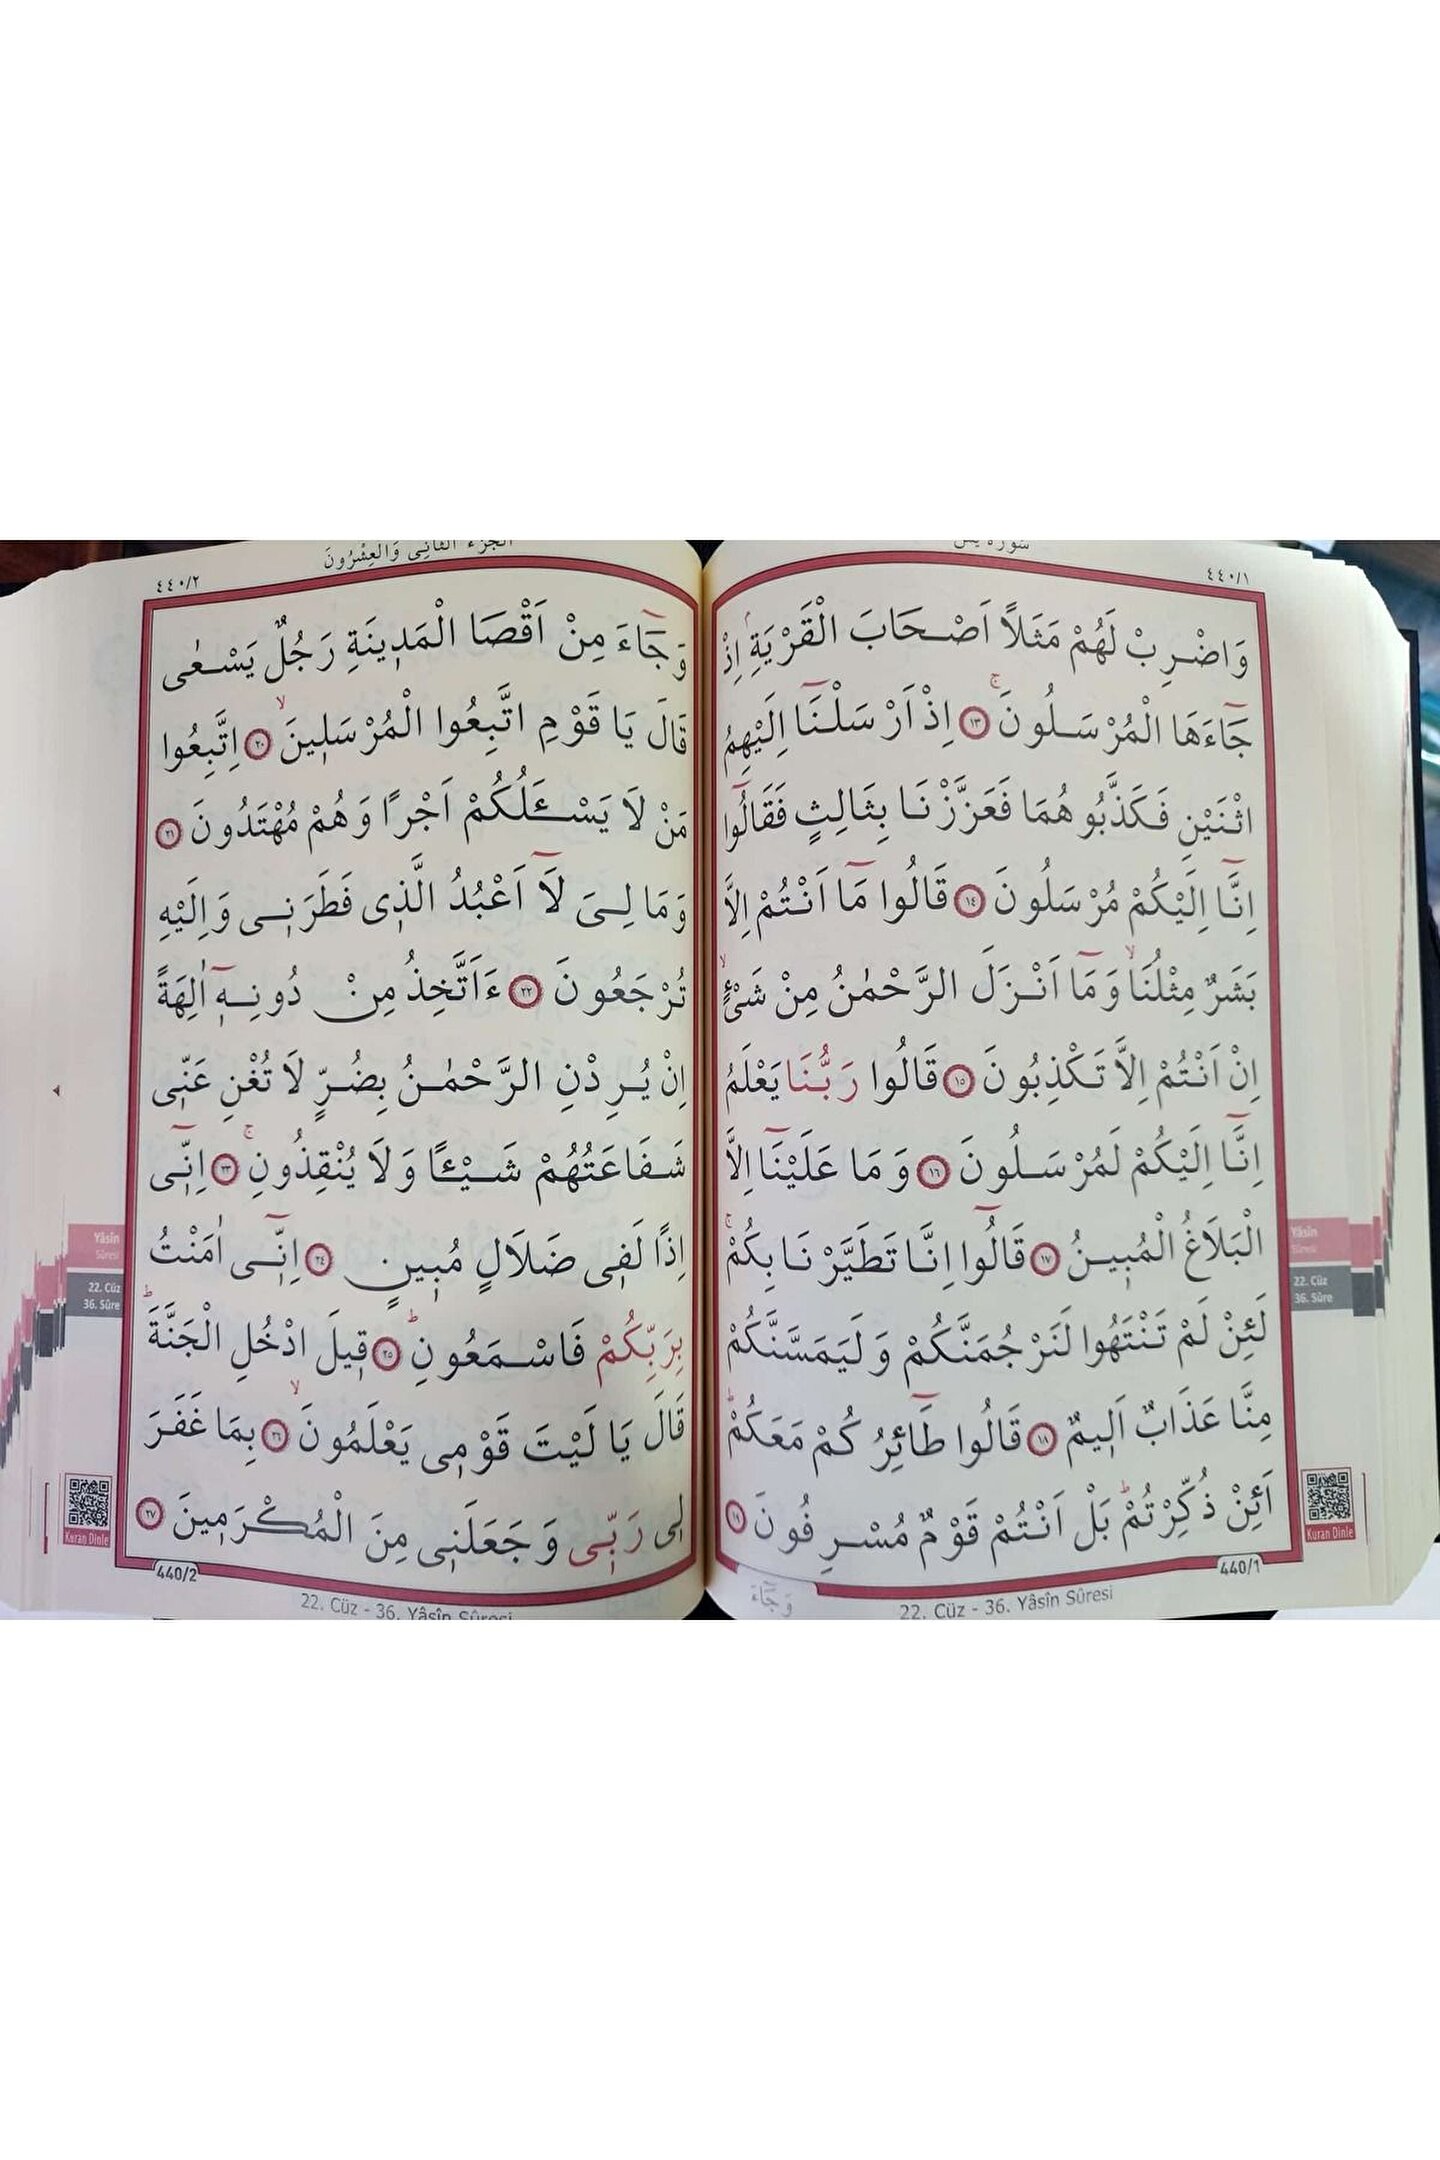 سورة يس
٤٤٠/١
وَاضْرِبْ لَهُمْ مَثَلاً اَصْحَابَ الْقَرْيَةِۢ اِذْ
جَٓاءَهَا الْمُرْسَلُونَۚ ﴿١٣﴾ اِذْ اَرْسَلْنَٓا اِلَيْهِمُ
اثْنَيْنِ فَكَذَّبُوهُمَا فَعَزَّزْنَا بِثَالِثٍ فَقَالُٓوا
اِنَّٓا اِلَيْكُمْ مُرْسَلُونَ ﴿١٤﴾ قَالُوا مَٓا اَنْتُمْ اِلَّا
بَشَرٌ مِثْلُنَاۙ وَمَٓا اَنْزَلَ الرَّحْمٰنُ مِنْ شَیْءٍۙ
اِنْ اَنْتُمْ اِلَّا تَكْذِبُونَ ﴿١٥﴾ قَالُوا رَبُّنَا يَعْلَمُ
اِنَّٓا اِلَيْكُمْ لَمُرْسَلُونَ ﴿١٦﴾ وَمَا عَلَيْنَٓا اِلَّا
الْبَلَاغُ الْمُبٖينُ ﴿١٧﴾ قَالُٓوا اِنَّا تَطَيَّرْنَا بِكُمْۚ
لَئِنْ لَمْ تَنْتَهُوا لَنَرْجُمَنَّكُمْ وَلَيَمَسَّنَّكُمْ
مِنَّا عَذَابٌ اَلٖيمٌ ﴿١٨﴾ قَالُوا طَٓائِرُكُمْ مَعَكُمْۜ
اَئِنْ ذُكِّرْتُمْۜ بَلْ اَنْتُمْ قَوْمٌ مُسْرِفُونَ ﴿١٩﴾
440/1
وَجَٓاءَ
22. Cüz - 36. Yâsîn Sûresi
Yâsîn
Sûresi
22. Cüz
36. Sûre
Kuran Dinle
الجزء الثانى وَالْعِشْرُونَ
٤٤٠/٢
وَجَٓاءَ مِنْ اَقْصَا الْمَدٖينَةِ رَجُلٌ يَسْعٰى
قَالَ يَا قَوْمِ اتَّبِعُوا الْمُرْسَلٖينَۙ ﴿٢٠﴾ اِتَّبِعُوا
مَنْ لَا يَسْـَٔلُكُمْ اَجْرًا وَهُمْ مُهْتَدُونَ ﴿٢١﴾
وَمَا لِىَ لَٓا اَعْبُدُ الَّذٖى فَطَرَنٖى وَاِلَيْهِ
تُرْجَعُونَ ﴿٢٢﴾ ءَاَتَّخِذُ مِنْ دُونِهٖٓ اٰلِهَةً
اِنْ يُرِدْنِ الرَّحْمٰنُ بِضُرٍّ لَا تُغْنِ عَنّٖى
شَفَاعَتُهُمْ شَيْـًٔا وَلَا يُنْقِذُونِۚ ﴿٢٣﴾ اِنّٖٓى
اِذًا لَفٖى ضَلَالٍ مُبٖينٍ ﴿٢٤﴾ اِنّٖٓى اٰمَنْتُ
بِرَبِّكُمْ فَاسْمَعُونِۜ ﴿٢٥﴾ قٖيلَ ادْخُلِ الْجَنَّةَۜ
قَالَ يَا لَيْتَ قَوْمٖى يَعْلَمُونَۙ ﴿٢٦﴾ بِمَا غَفَرَ
لٖى رَبّٖى وَجَعَلَنٖى مِنَ الْمُكْرَمٖينَ ﴿٢٧﴾
440/2
22. Cüz - 36. Yâsîn Sûresi
Yâsîn
Sûresi
22. Cüz
36. Sûre
Kuran Dinle